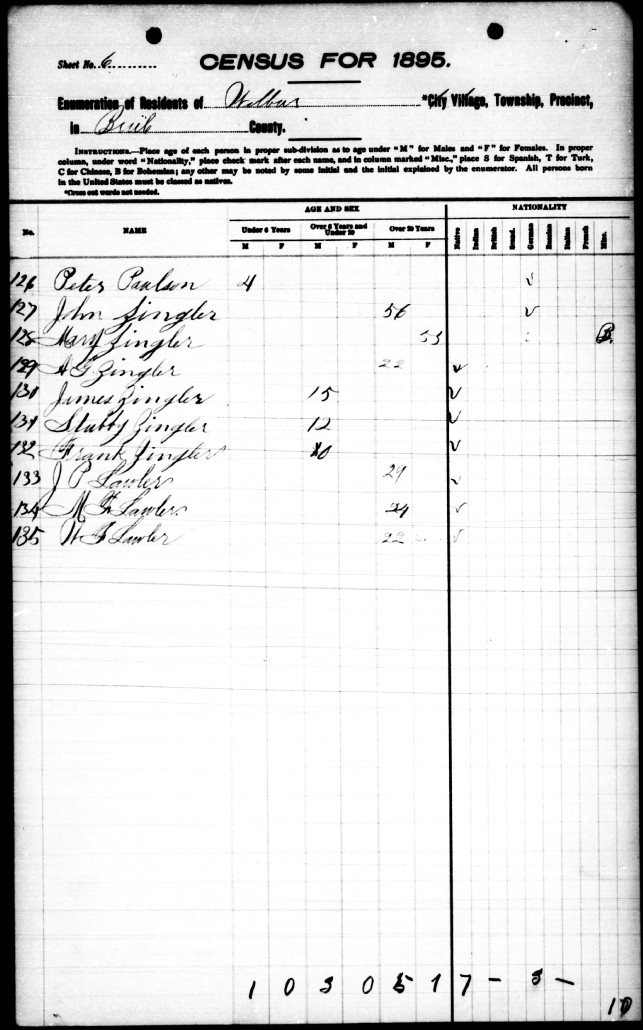 Sheet No. 6
CENSUS FOR 1895.
Enumeration of Residents of Wilbur *City Village, Township, Precinct,
in Brule County.
INSTRUCTIONS.—Place age of each person in proper sub-division as to age under "M" for Males and "F" for Females. In proper
column, under word "Nationality," place check mark after each name, and in column marked "Misc.," place S for Spanish, T for Turk,
C for Chinese, B for Bohemian; any other may be noted by some initial and the initial explained by the enumerator. All persons born
in the United States must be classed as natives.
*Cross out words not needed.
No. NAME AGE AND SEX NATIONALITY
Under 6 Years Over 6 Years and Under 20 Over 20 Years
M F M F M F Native Indian British Scand. German Russian Italian French Misc.
126 Peter Paulson 4 ✓
127 John Zingler 56 ✓
128 Mary Zingler 53 B
129 A G Zingler 22 ✓
130 James Zingler 15 ✓
131 Stubby Zingler 12 ✓
132 Frank Zingler 10 ✓
133 J P Lawler 29 ✓
134 M Lawler 24 ✓
135 W F Lawler 22 ✓
1 0 3 0 5 1 7 – 3 –
10